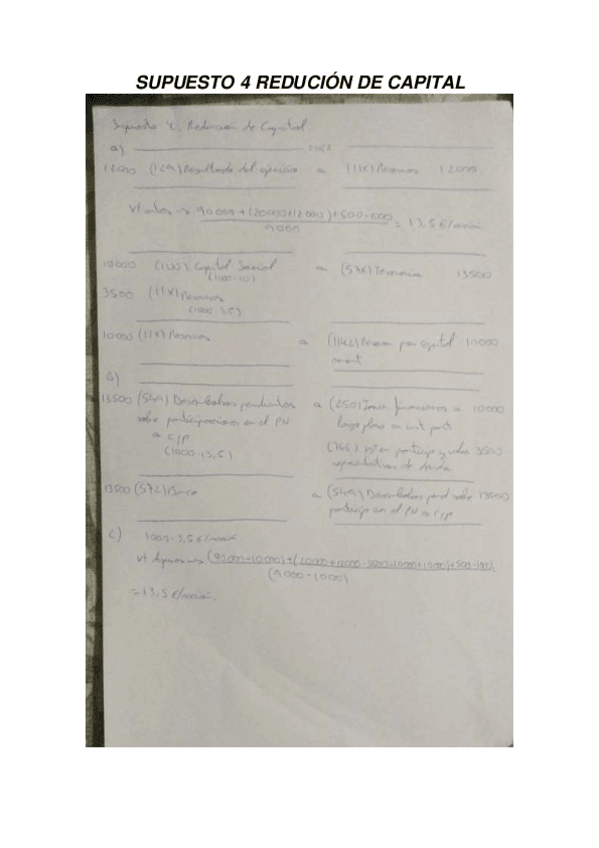 SUPUESTO 4 REDUCIÓN DE CAPITAL
Supuesto 4: Reducción de Capital
a)
12000 (129) Resultado del ejercicio a (11X) Reservas 12000
Vt antes → 90000 + (20000+12000) + 500-1000
9000
= 13,5 €/acción
10000 (100) Capital Social a (57X) Tesorería 13500
(1000·10)
3500 (11X) Reservas
(1000·3,5)
10000 (11X) Reservas a (1142) Reservas por capital 10000
amort
13500 (549) Desembolsos pendientes a (250) financieras a 10000
sobre participaciones en el PN largo plazo en
a c/p
(1000·13,5)
(766) en particip y valores 3500
representativos de deuda
13500 (572) Banco a (549) Desembolsos pend sobre 13500
particip en el PN a c/p
c) 1000·3,5 €/acción
Vt después → (90000-10000)+(20000+12000-3500-10000+10000)+
(9000-1000)
= 13,5 €/acción.